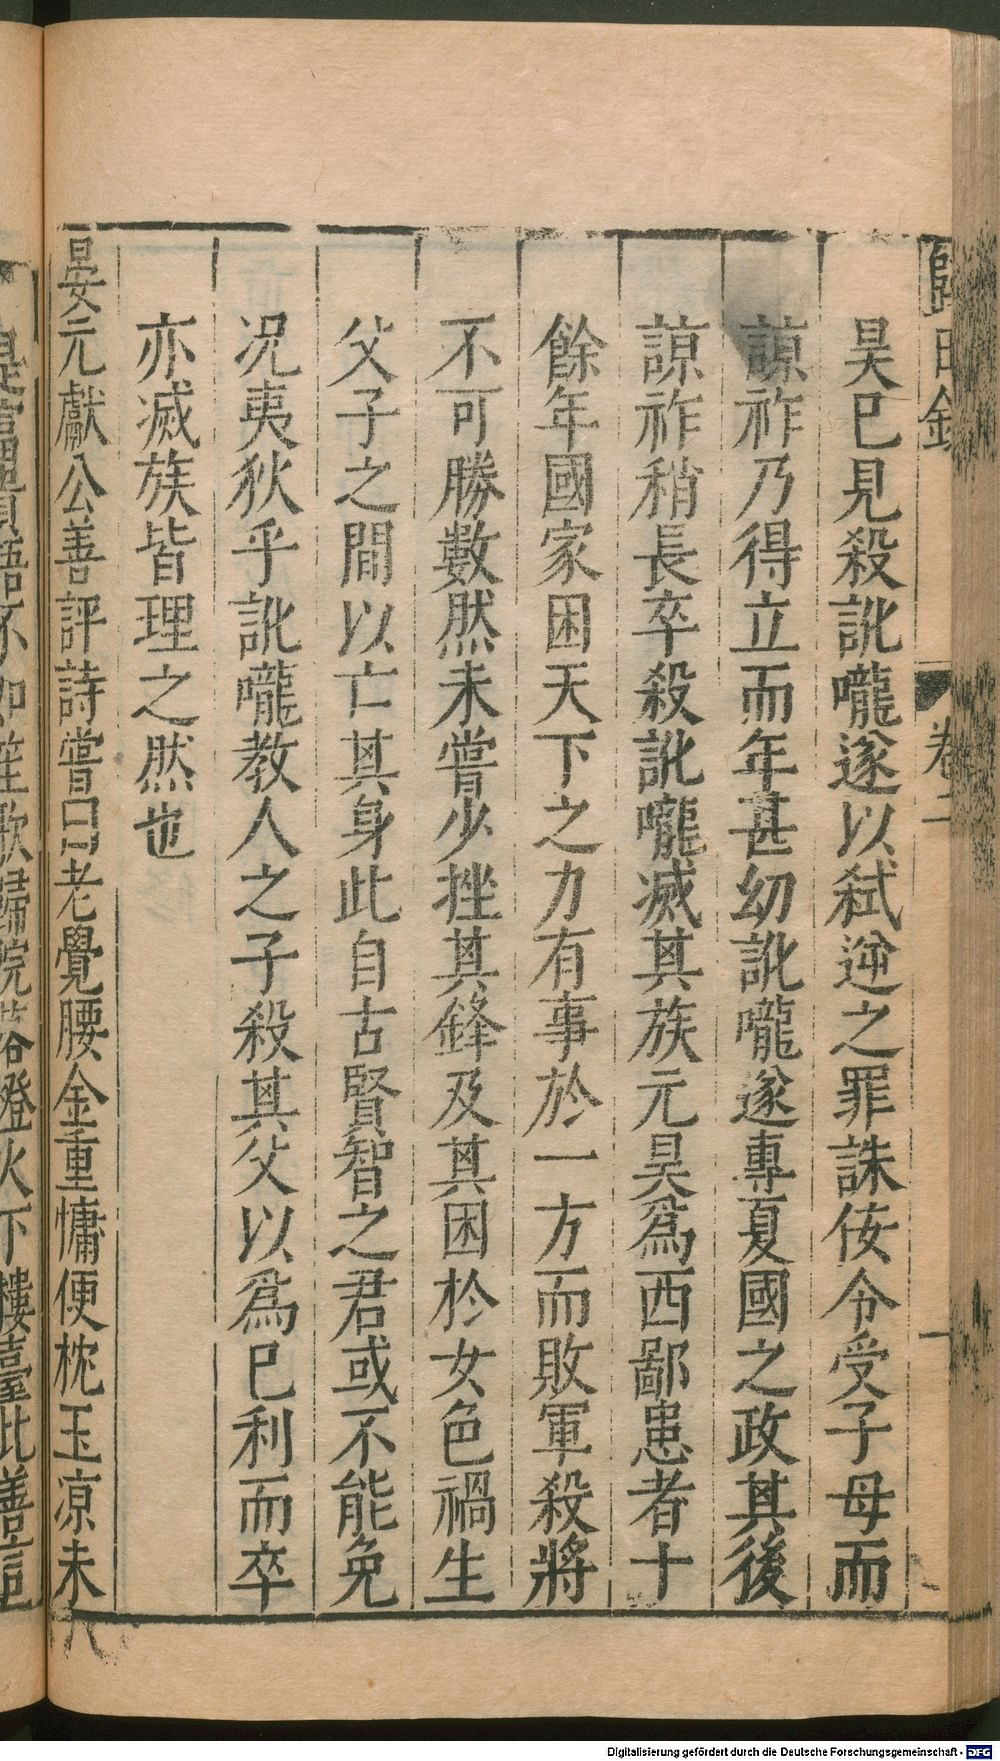 歸田錄 卷二 一
昊已見殺訛嚨遂以弑逆之罪誅侫令受子母而
諒祚乃得立而年甚幼訛嚨遂專夏國之政其後
諒祚稍長卒殺訛嚨滅其族元昊爲西鄙患者十
餘年國家困天下之力有事於一方而敗軍殺將
不可勝數然未嘗少挫其鋒及其困於女色禍生
父子之間以亡其身此自古賢智之君或不能免
况夷狄乎訛嚨教人之子殺其父以爲已利而卒
亦滅族皆理之然也
晏元獻公善評詩嘗曰老覺腰金重慵便枕玉凉未
是富貴語不如笙歌歸院落燈火下樓臺此善言
Digitalisierung gefördert durch die Deutsche Forschungsgemeinschaft - DFG